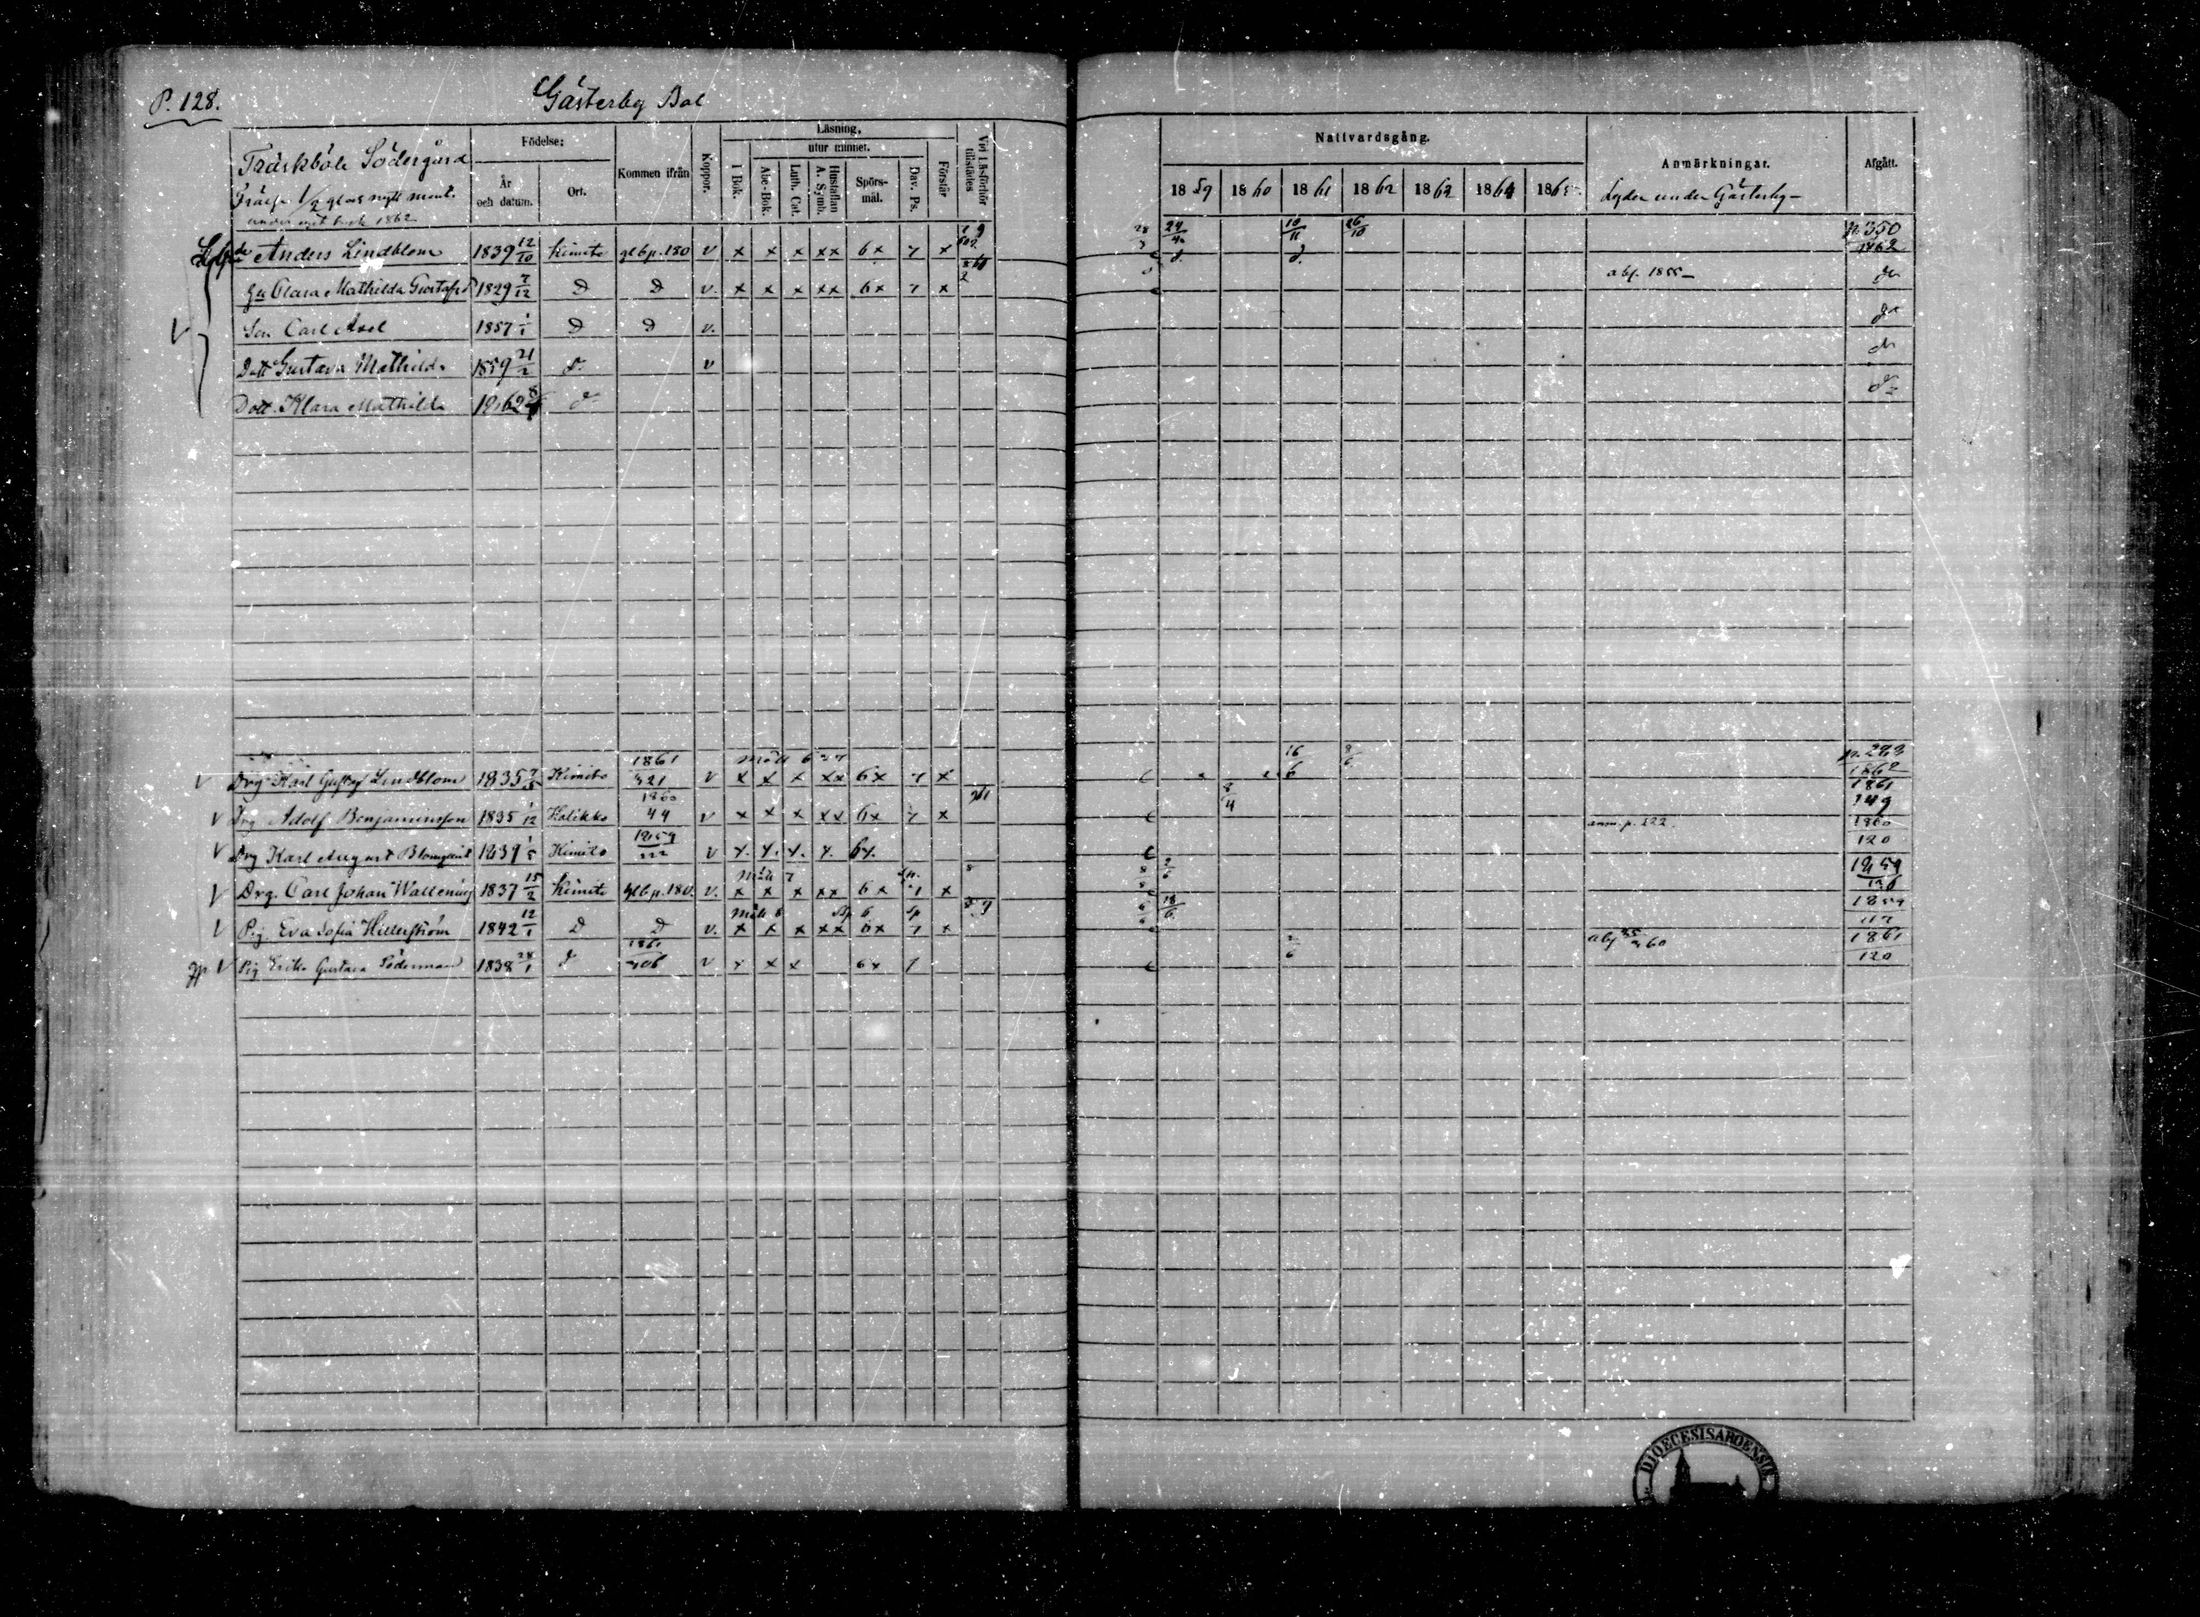 P. 128.
Gästerby Bol
Träskböle Södergård
Frälse 1/2 gl och nytt mant.
1862
Födelse:
År och datum.
Ort.
Kommen ifrån
Koppor.
Läsning,
utur minnet.
I Bok.
Abc-Bok.
Luth. Cat.
Hustaflan A. Symb.
Spörs-mål.
Dav. Ps.
Förstår
Vid Läsförhör tillstädes
Nattvardsgång.
1859 1860 1861 1862 1863 1864 1865
Anmärkningar.
Lyder under Gästerby –
Afgått.
Anders Lindblom 1839 12/10 Kimito glb p. 180 v x x x xx 6x 7 x 24/4 10/11 26/10 p. 350 1862
Hu Clara Mathilda Gustafsd 1829 7/12 D D v. x x x xx 6x 7 x abf. 1855 – do
Son Carl Axel 1857 1/1 D D v. do
Dott Gustava Mathilda 1859 21/2 d. v do
Dott. Klara Mathilda 1862 do
Drg Karl Gustaf Lindblom 1835 Kimito 1861 321 v x x x xx 6x 7 x 16/6 8/6 p. 283 1862
Drg Adolf Benjaminsson 1835 1/12 Halikko 1860 44 v x x x xx 6x 7 x 8/4 1861 149
Drg Karl August Blomqvist 1839 1/5 Kimito 1859 222 v 6x. anm. p. 222. 1860 120
Drg. Carl Johan Wallenius 1837 15/2 Kimito glb p. 180. v. x x x xx 6x 7 x 1859 126
Pig. Eva Sofia Hellerström 1842 12/1 D D v. x x x xx 6x 7 x 18/6 1859 117
Pig Erika Gustava Söderman 1838 28/1 d 1861 306 v x x x 6x 7 abf 25/3 60 1861 120
DIOECESIS ABOENSIS